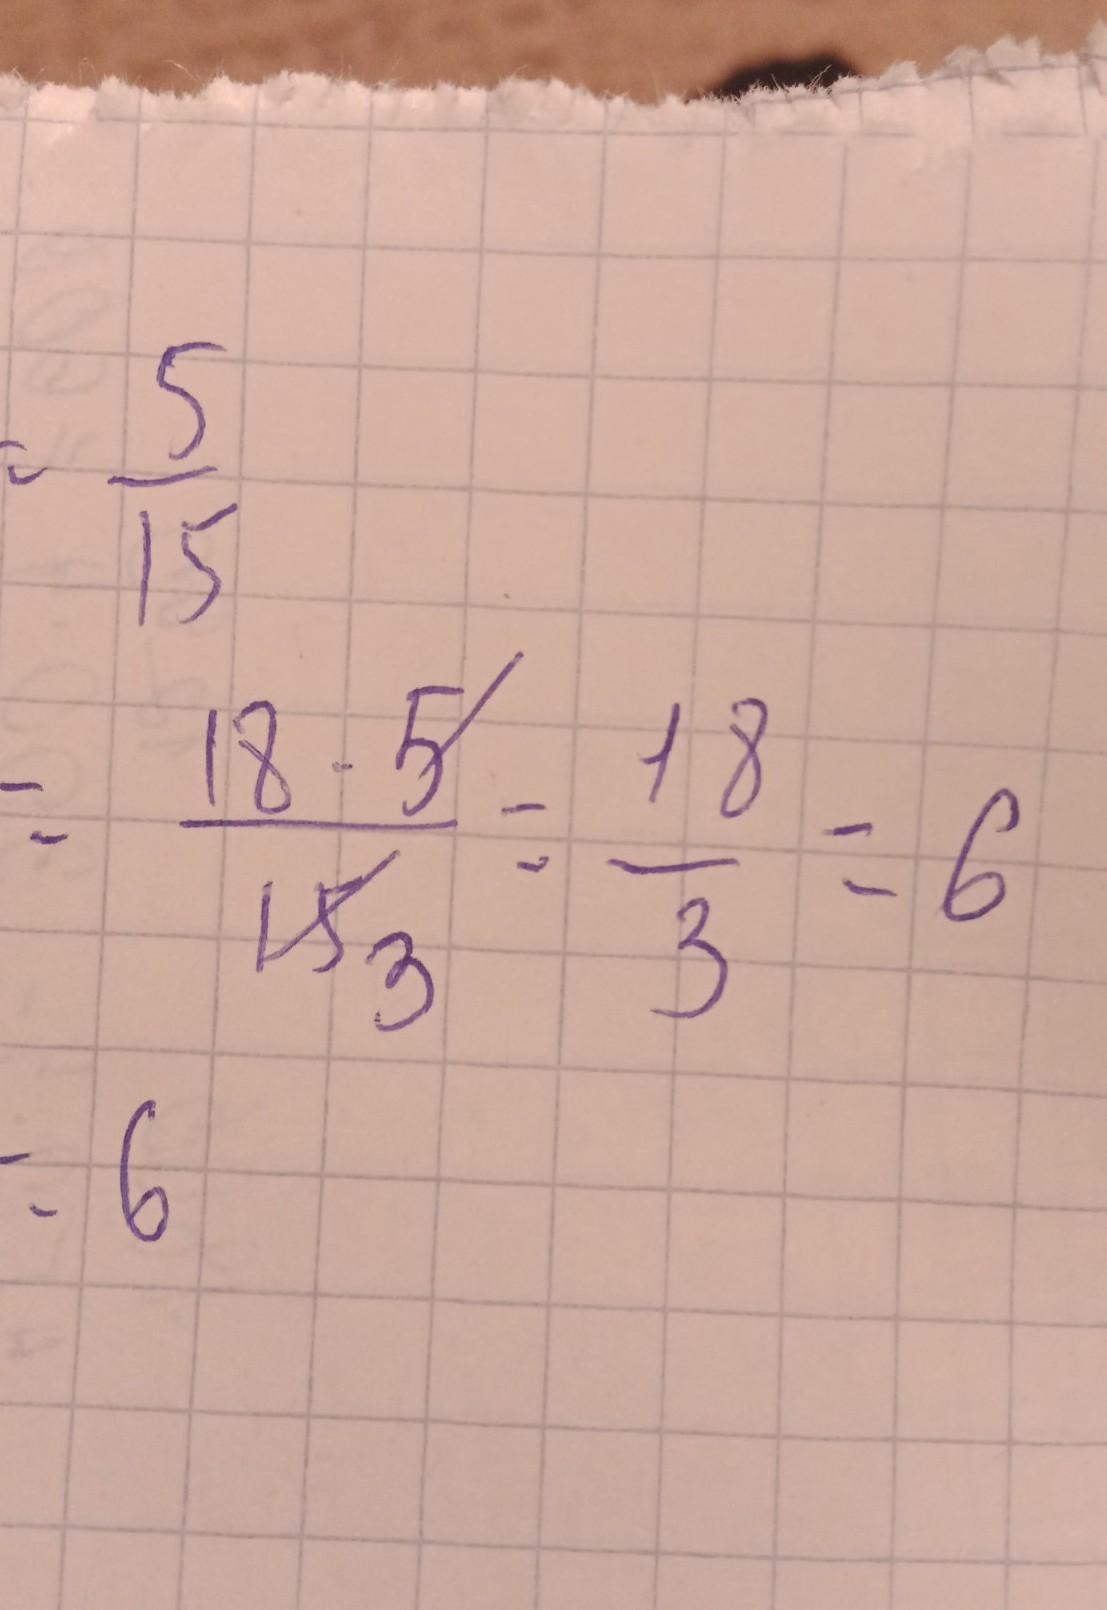 = 5/15
= 18 · 5/15 3 = 18/3 = 6
= 6